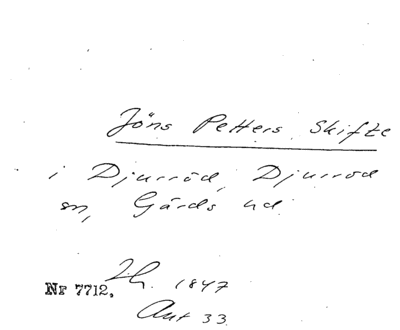 Jöns Petters Skifte
i Djurröd, Djurröd
sn, Gärds hd
Nr 7712. Th. 1847
Ant 33